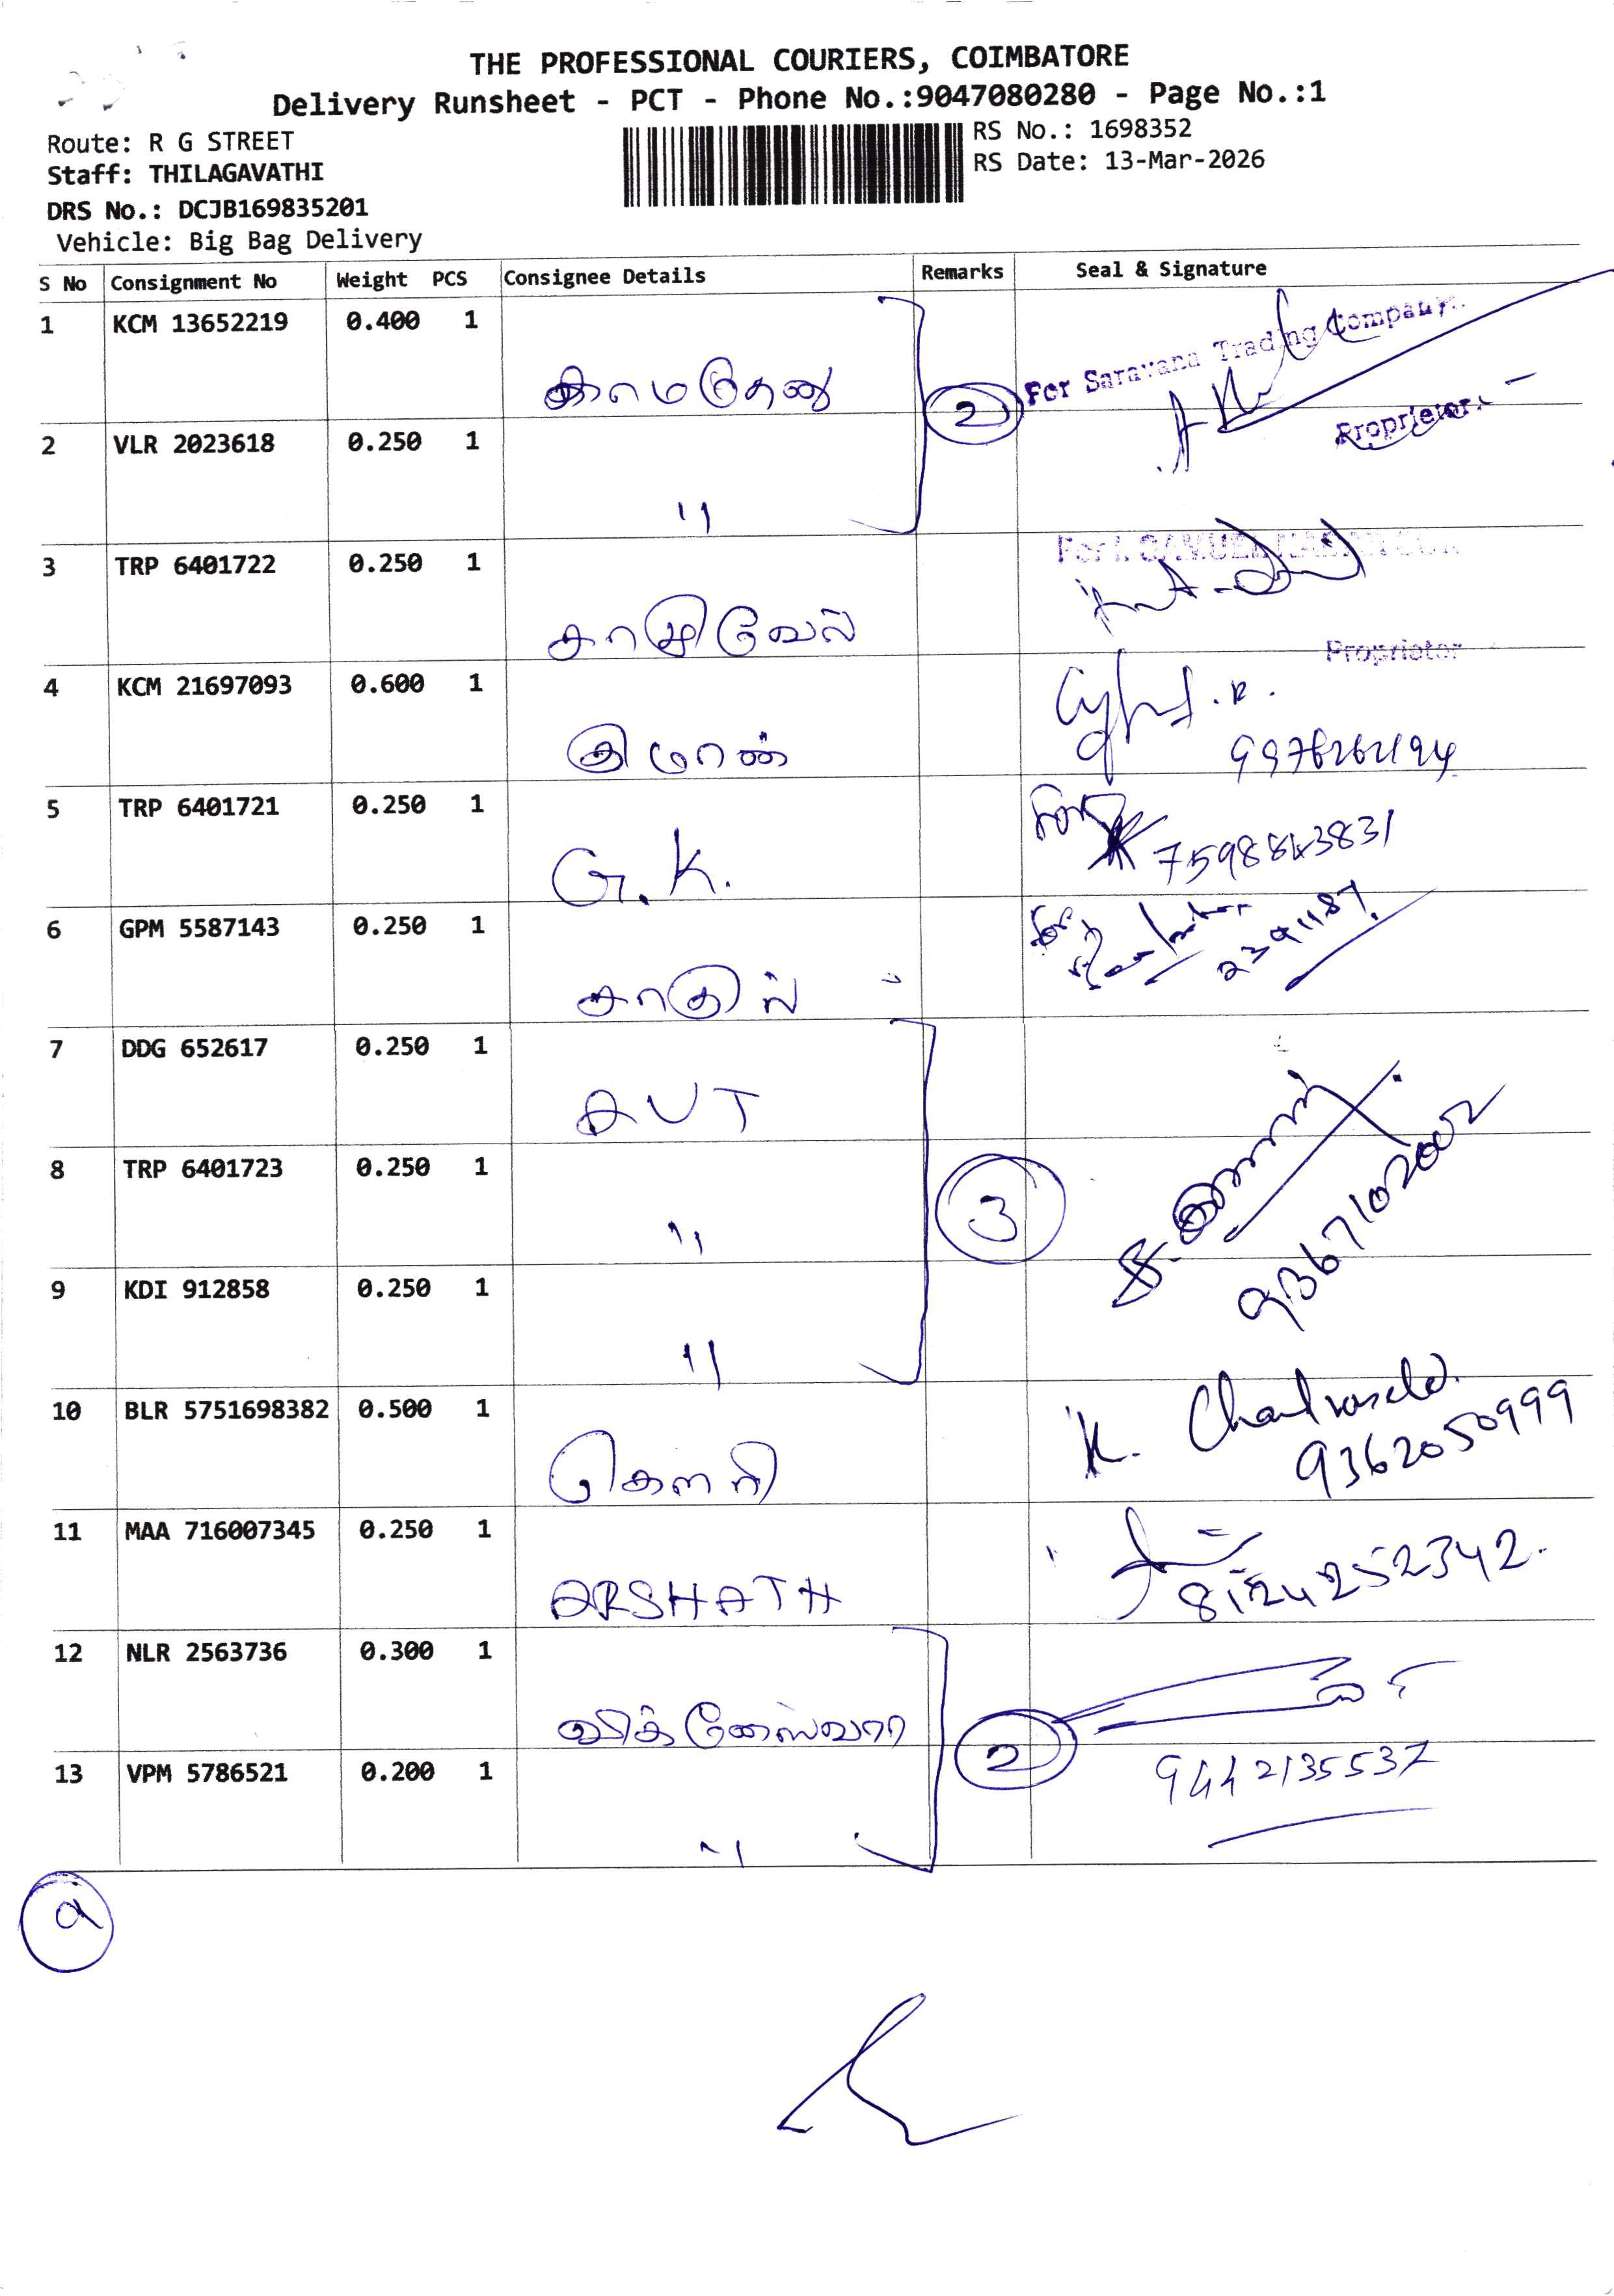 THE PROFESSIONAL COURIERS, COIMBATORE
Delivery Runsheet - PCT - Phone No.:9047080280 - Page No.:1
Route: R G STREET
RS No.: 1698352
Staff: THILAGAVATHI
RS Date: 13-Mar-2026
DRS No.: DCJB169835201
Vehicle: Big Bag Delivery
S No Consignment No Weight PCS Consignee Details Remarks Seal & Signature
1 KCM 13652219 0.400 1
காமதேனு
2
For Saravana Trading Company.
Proprietor.
2 VLR 2023618 0.250 1
"
3 TRP 6401722 0.250 1
காழிவேல்
Proprietor
4 KCM 21697093 0.600 1
5 TRP 6401721 0.250 1
G.K.
For
7598843831
6 GPM 5587143 0.250 1
For
2391187
7 DDG 652617 0.250 1
AVT
8 TRP 6401723 0.250 1
"
3
9367102002
9 KDI 912858 0.250 1
"
10 BLR 5751698382 0.500 1
கௌரி
K.
9362050999
11 MAA 716007345 0.250 1
ARSHATH
8124252342.
12 NLR 2563736 0.300 1
விக்னேஸ்வரா
2
13 VPM 5786521 0.200 1
"
9442135537
a